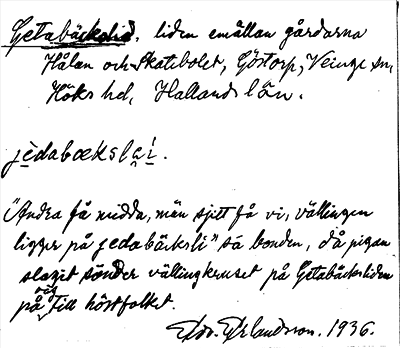 Getabäckslid, liden emellan gårdarna
Hålan och Skatebolet, Göstorp, Veinge sn,
Höks hd, Hallands län.
jèdabœkslai.
"Andra få midda, män sjitt få vi, vällingen
ligger på jedabäcksli" sa bonden, då pigan
slagit sönder vällingkruset på Getabäcksliden
på väg till höstfolket.
Edv. Erlandsson. 1936.